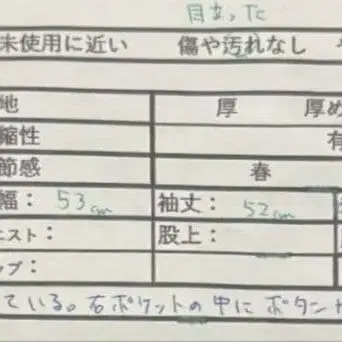 目立った
未使用に近い 傷や汚れなし
地 厚 厚め
縮性 有
節感 春
幅： 53cm 袖丈： 52cm
エスト： 股上：
ップ：
ている。右ポケットの中にボタンが